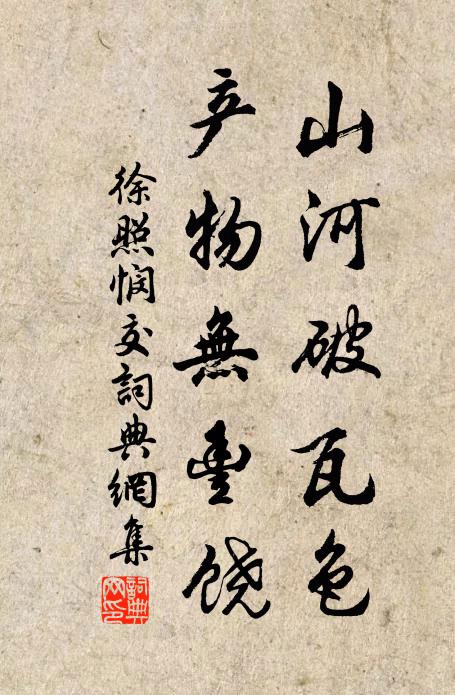 山河破瓦色
产物無豊饶
徐照悯交詞典網集
詞典網印